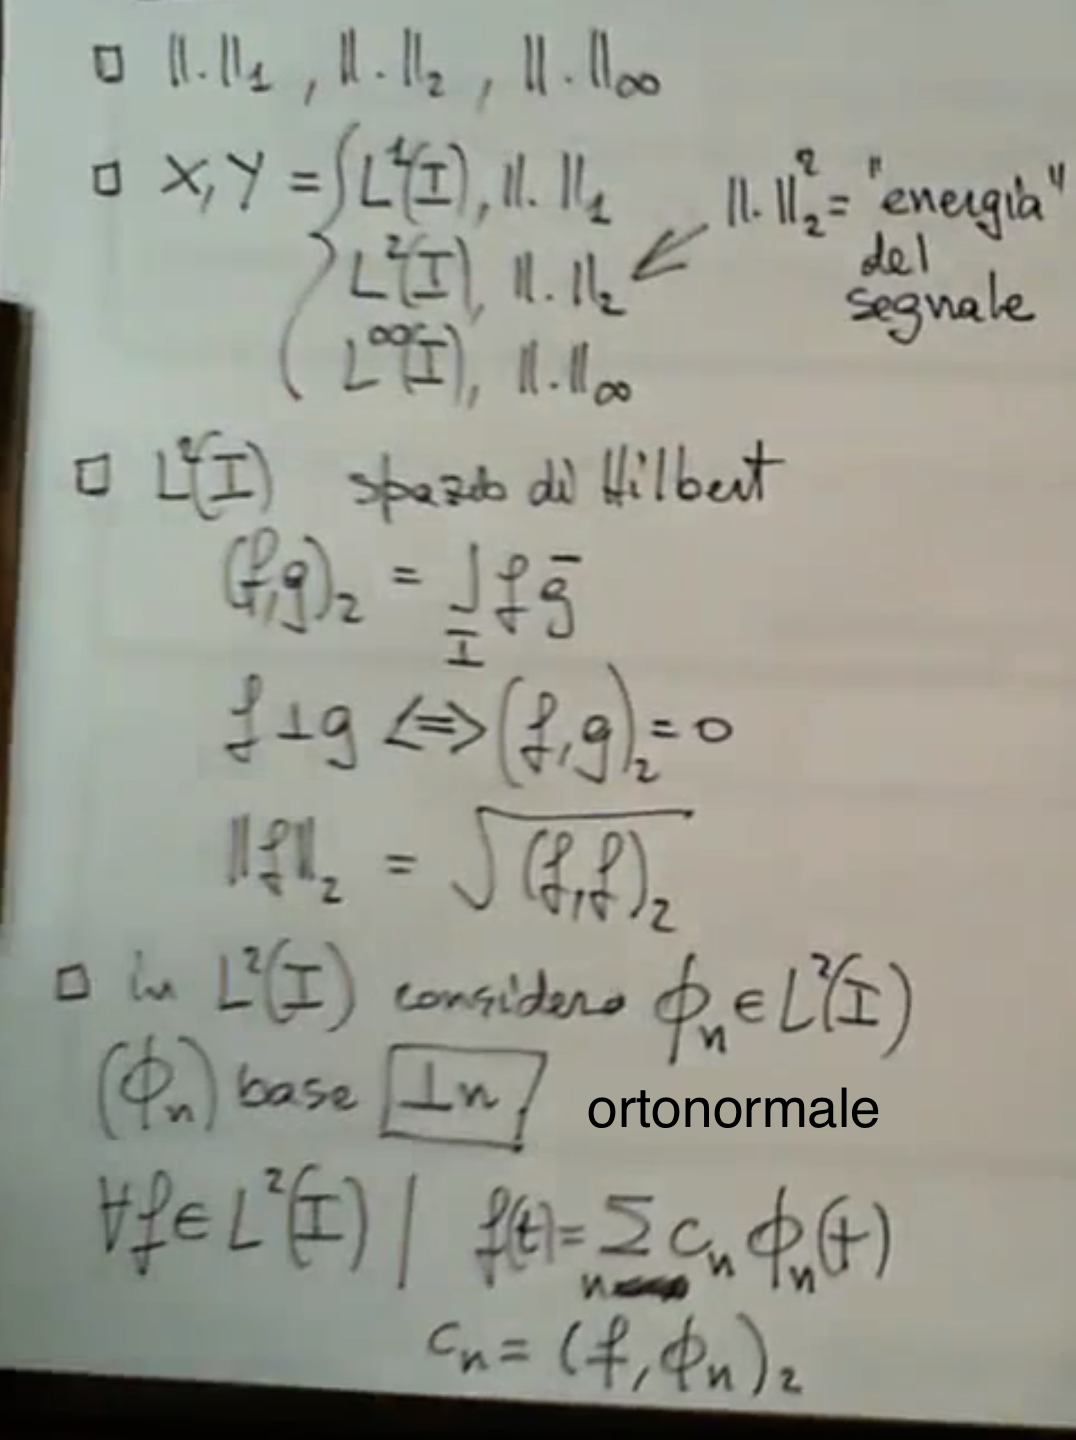 □ ||.||₁ , ||.||₂ , ||.||∞
□ X,Y = { L¹(I), ||.||₁
L²(I), ||.||₂ ↙ ||.||₂² = "energia" del segnale
L∞(I), ||.||∞
□ L²(I) spazio di Hilbert
(f,g)₂ = ∫_I f ḡ
f ⊥ g <=> (f,g)₂ = 0
||f||₂ = √(f,f)₂
□ in L²(I) considero ϕₙ ∈ L²(I)
(ϕₙ) base ⊥n ortonormale
∀f ∈ L²(I) | f(t) = Σₙ cₙ ϕₙ(t)
cₙ = (f, ϕₙ)₂